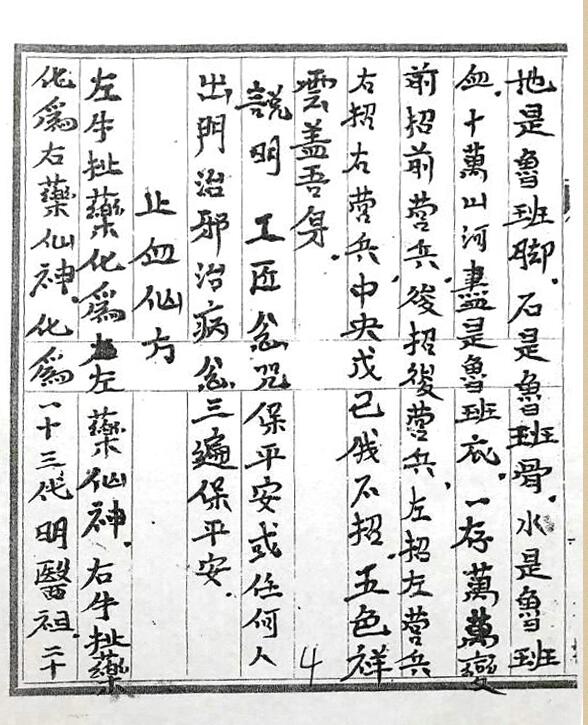 地是魯班脚.石是魯班骨.水是魯班
血.十萬山河盡是魯班衣.一存萬萬變
前招前营兵.後招後营兵.左招左营兵
右招右营兵.中央戊己俄不招.五色祥
雲盖吾身.
說明 工匠念咒保平安或任何人
出門治邪治病念三遍保平安.
止血仙方
左牛扯藥化為左藥仙神.右牛扯藥
化為右藥仙神.化為一十三代明醫祖.二十
4